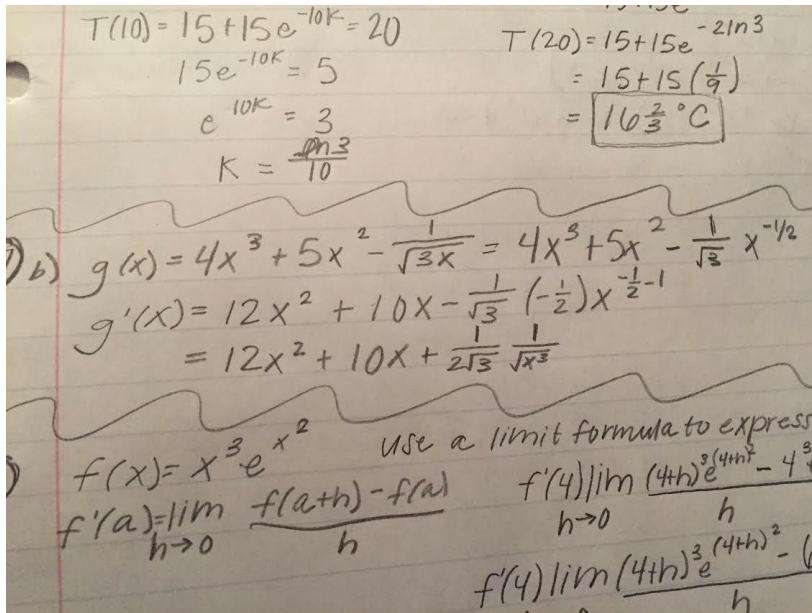 T(10) = 15 + 15e^{-10K} = 20
15e^{-10K} = 5
e^{10K} = 3
K = \frac{ln 3}{10}
T(20) = 15 + 15e^{-2ln3}
= 15 + 15 (\frac{1}{9})
= 16 \frac{2}{3} °C
b) g(x) = 4x^3 + 5x^2 - \frac{1}{\sqrt{3x}} = 4x^3 + 5x^2 - \frac{1}{\sqrt{3}} x^{-1/2}
g'(x) = 12x^2 + 10x - \frac{1}{\sqrt{3}} (-\frac{1}{2}) x^{-\frac{1}{2}-1}
= 12x^2 + 10x + \frac{1}{2\sqrt{3}} \frac{1}{\sqrt{x^3}}
f(x) = x^3 e^{x^2}
use a limit formula to express
f'(a) = lim_{h→0} \frac{f(a+h) - f(a)}{h}
f'(4) lim_{h→0} \frac{(4+h)^3 e^{(4+h)^2} - 4^3}{h}
f'(4) lim \frac{(4+h)^3 e^{(4+h)^2} - (}{h}